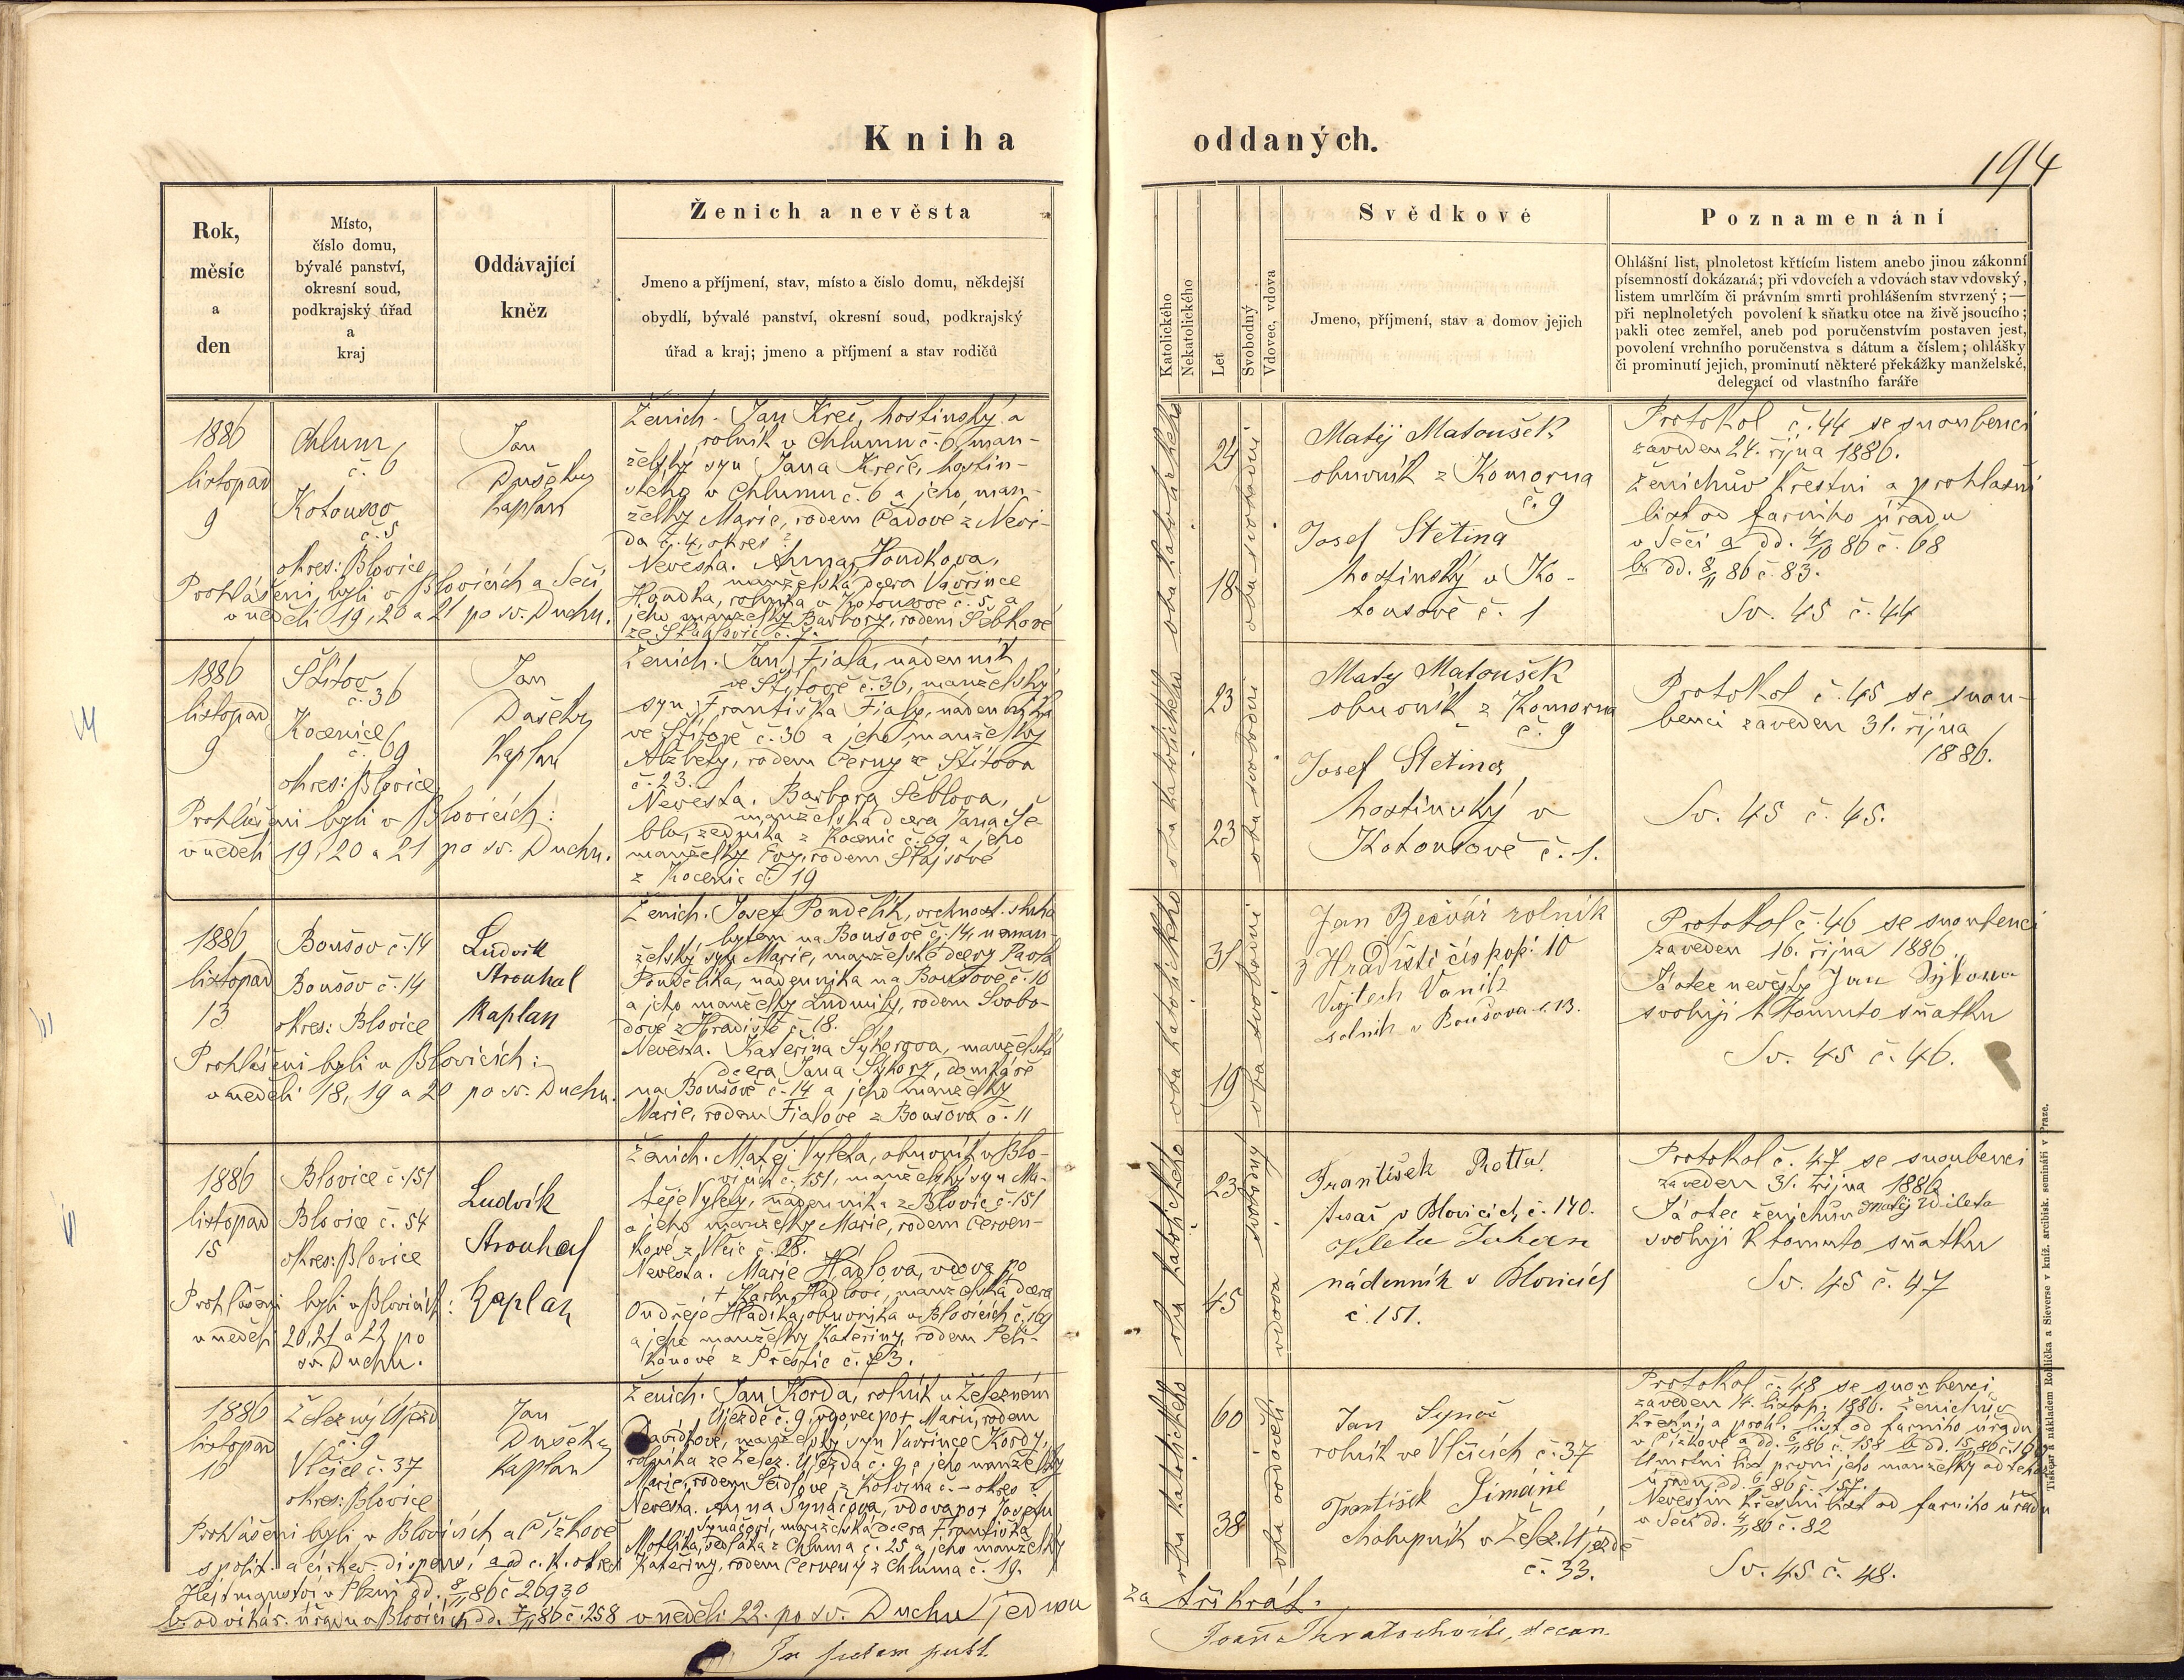 Kniha oddaných.
194
Rok,
měsíc
a
den
Místo,
číslo domu,
bývalé panství,
okresní soud,
podkrajský úřad
a
kraj
Oddávající
kněz
Ženich a nevěsta
Jmeno a příjmení, stav, místo a číslo domu, někdejší
obydlí, bývalé panství, okresní soud, podkrajský
úřad a kraj; jmeno a příjmení a stav rodičů
Katolického
Nekatolického
Let
Svobodný
Vdovec, vdova
Svědkové
Jmeno, příjmení, stav a domov jejich
Poznamenání
Ohlášní list, plnoletost křtícím listem anebo jinou zákonní
písemností dokázaná; při vdovcích a vdovách stav vdovský,
listem umrlčím či právním smrti prohlášením stvrzený; —
při neplnoletých povolení k sňatku otce na živě jsoucího;
pakli otec zemřel, aneb pod poručenstvím postaven jest,
povolení vrchního poručenstva s dátum a číslem; ohlášky
či prominutí jejich, prominutí některé překážky manželské,
delegací od vlastního faráře
1886
listopad
9
Chlum
č. 6
Kotousov
č. 5
okres: Blovice
Jan
Dušeky
kaplan
Prohlášeni byli v Blovicích a Seči
v neděli 19, 20 a 21 po sv. Duchu.
Ženich. Jan Kreč, hostinský a
rolník v Chlumu č. 6, man-
želský syn Jana Kreče, hostin-
ského v Chlumu č. 6 a jeho man-
želky Marie, rodem Čadové z Neri-
da č. 4, okres ?
Nevěsta. Anna Houdkova,
manželská dcera Vavřince
Houdka, rolníka v Kotousově č. 5 a
jeho manželky Barbory, rodem Šebkové
24
18
oba katolického
oba svobodní
Matěj Matoušek
obuvník z Komorna
č. 9
Josef Stetina
hostinský v Ko-
tousově č. 1
Protokol č. 44 se snoubenci
zaveden 24. října 1886.
Ženichův křestní a prohlašní
list od farního úřadu
v Seči a dd. 4/10 86 č. 68
b dd. 8/11 86 č. 83.
Sv. 45 č. 44
1886
listopad
9
Štítov
č. 36
Kocenice
č. 69
okres: Blovice
Jan
Dušeky
kaplan
Prohlášeni byli v Blovicích:
v neděli 19, 20 a 21 po sv. Duchu.
Ženich. Jan Fiala, nádenník
ve Štítově č. 36, manželský
syn Františka Fialy, nádenníka
ve Štítově č. 36 a jeho manželky
Alžběty, rodem Černy ze Štítova
č. 23.
Nevěsta. Barbora Šeblova,
manželská dcera Jana Še-
bla, zedníka z Kocenic č. 69 a jeho
manželky Evy, rodem Štajsové
z Kocenic č. 19
23
23
oba katolického
oba svobodní
Matěj Matoušek
obuvník z Komorna
č. 9
Josef Stetina
hostinský v
Kotousově č. 1.
Protokol č. 45 se snou-
benci zaveden 31. října
1886.
Sv. 45 č. 45.
1886
listopad
13
Boušov č. 14
Boušov č. 14
okres: Blovice
Ludvík
Strouhal
kaplan
Prohlášeni byli v Blovicích:
v neděli 18, 19 a 20 po sv. Duchu.
Ženich. Josef Pondělík, vrchnost. sluha
bytem na Boušově č. 14, neman-
želský syn Marie, manželské dcery Pavla
Pondělíka, nádenníka na Boušově č. 10
a jeho manželky Ludmily, rodem Svobo-
dové z Hradiště č. 18.
Nevěsta. Kateřina Sýkorova, manželská
dcera Jana Sýkory, domkáře
na Boušově č. 14 a jeho manželky
Marie, rodem Fialové z Boušova č. 11
31
19
oba katolického
oba svobodní
Jan Bečvář rolník
z Hradiště čís pop: 10
Vojtech Vaník
rolník v Boušova č. 13.
Protokol č. 46 se snoubenci
zaveden 16. října 1886
Já otec nevěsty Jan Sýkora
svoluji k tomuto sňatku
Sv. 45 č. 46.
1886
listopad
15
Blovice č. 151
Blovice č. 54
okres: Blovice
Ludvík
Strouhal
Kaplan
Prohlášeni byli v Blovicích:
v neděli 20, 21 a 22 po
sv. Duchu.
Ženich. Matěj Vyleta, obuvník v Blo-
vicích č. 151, manželský syn Ma-
těje Vylety, nádenníka z Blovic č. 151
a jeho manželky Marie, rodem Červen-
kové z Vlčic č. 28.
Nevěsta. Marie Hádlova, vdova po
† Karlu Hádlovi, manželská dcera
Ondřeje Hladíka, obuvníka v Blovicích č. 169
a jeho manželky Kateřiny, rodem Peli-
kánové z Přeštic č. 73.
23
45
oba katolického
svobodný
vdova
František Rotta
tesař v Blovicích č. 140.
nádenník v Blovicích
č. 151.
Protokol č. 47 se snoubenci
zaveden 31. října 1886
Já otec ženichův Matěj Wileta
svoluji k tomuto sňatku
Sv. 45 č. 47
1886
listopad
16
Železný Újezd
č. 9
Vlčice č. 37
okres: Blovice
Jan
Dušeky
kaplan
Prohlášeni byli v Blovicích a Čížkově
s polit. a církev. dispensí a od c. k. okres.
Hejtmanství v Plzni dd. 8/11 86 č. 26930
b od vikář. úřadu v Blovicích dd. 7/11 86 č. 258 v neděli 22. po sv. Duchu jednou
za třikrát.
Ženich. Jan Korda, rolník v Železném
Újezdě č. 9, vdovec po † Marii, rodem
Davídkové, manželský syn Vavřince Kordy,
rolníka ze Želez. Újezda č. 9 a jeho manželky
Marie, rodem Seidlové z Kolvína č. - okres ?
Nevěsta. Anna Synáčova, vdova po † Josefu
Synáčovi, manželská dcera Františka
Motlíka, sedláka z Chluma č. 25 a jeho manželky
Kateřiny, rodem Červený z Chluma č. 19.
60
38
oba katolického
oba ovdovělí
Jan Synáč
rolník ve Vlčicích č. 37
František Šimáně
chalupník v Želez. Újezdě
č. 33.
Protokol č. 48 se snoubenci
zaveden 14. listop. 1886. Ženichův
křestní a prohl. list od farního úřadu
v Čížkově a dd. 6/11 86 č. 158 b dd. 15/11 86 č.
Úmrtní list první jeho manželky od téhož
úřadu dd. 6/11 86 č. 157.
Nevěstin křestní list od farního úřadu
v Seči dd. 4/11 86 č. 82
Sv. 45 č. 48.
In fidem publ.
Joan Kratochvile, decan.
Tiskem a nákladem Rohlíčka a Sieverse v kníž. arcibisk. semináři v Praze.